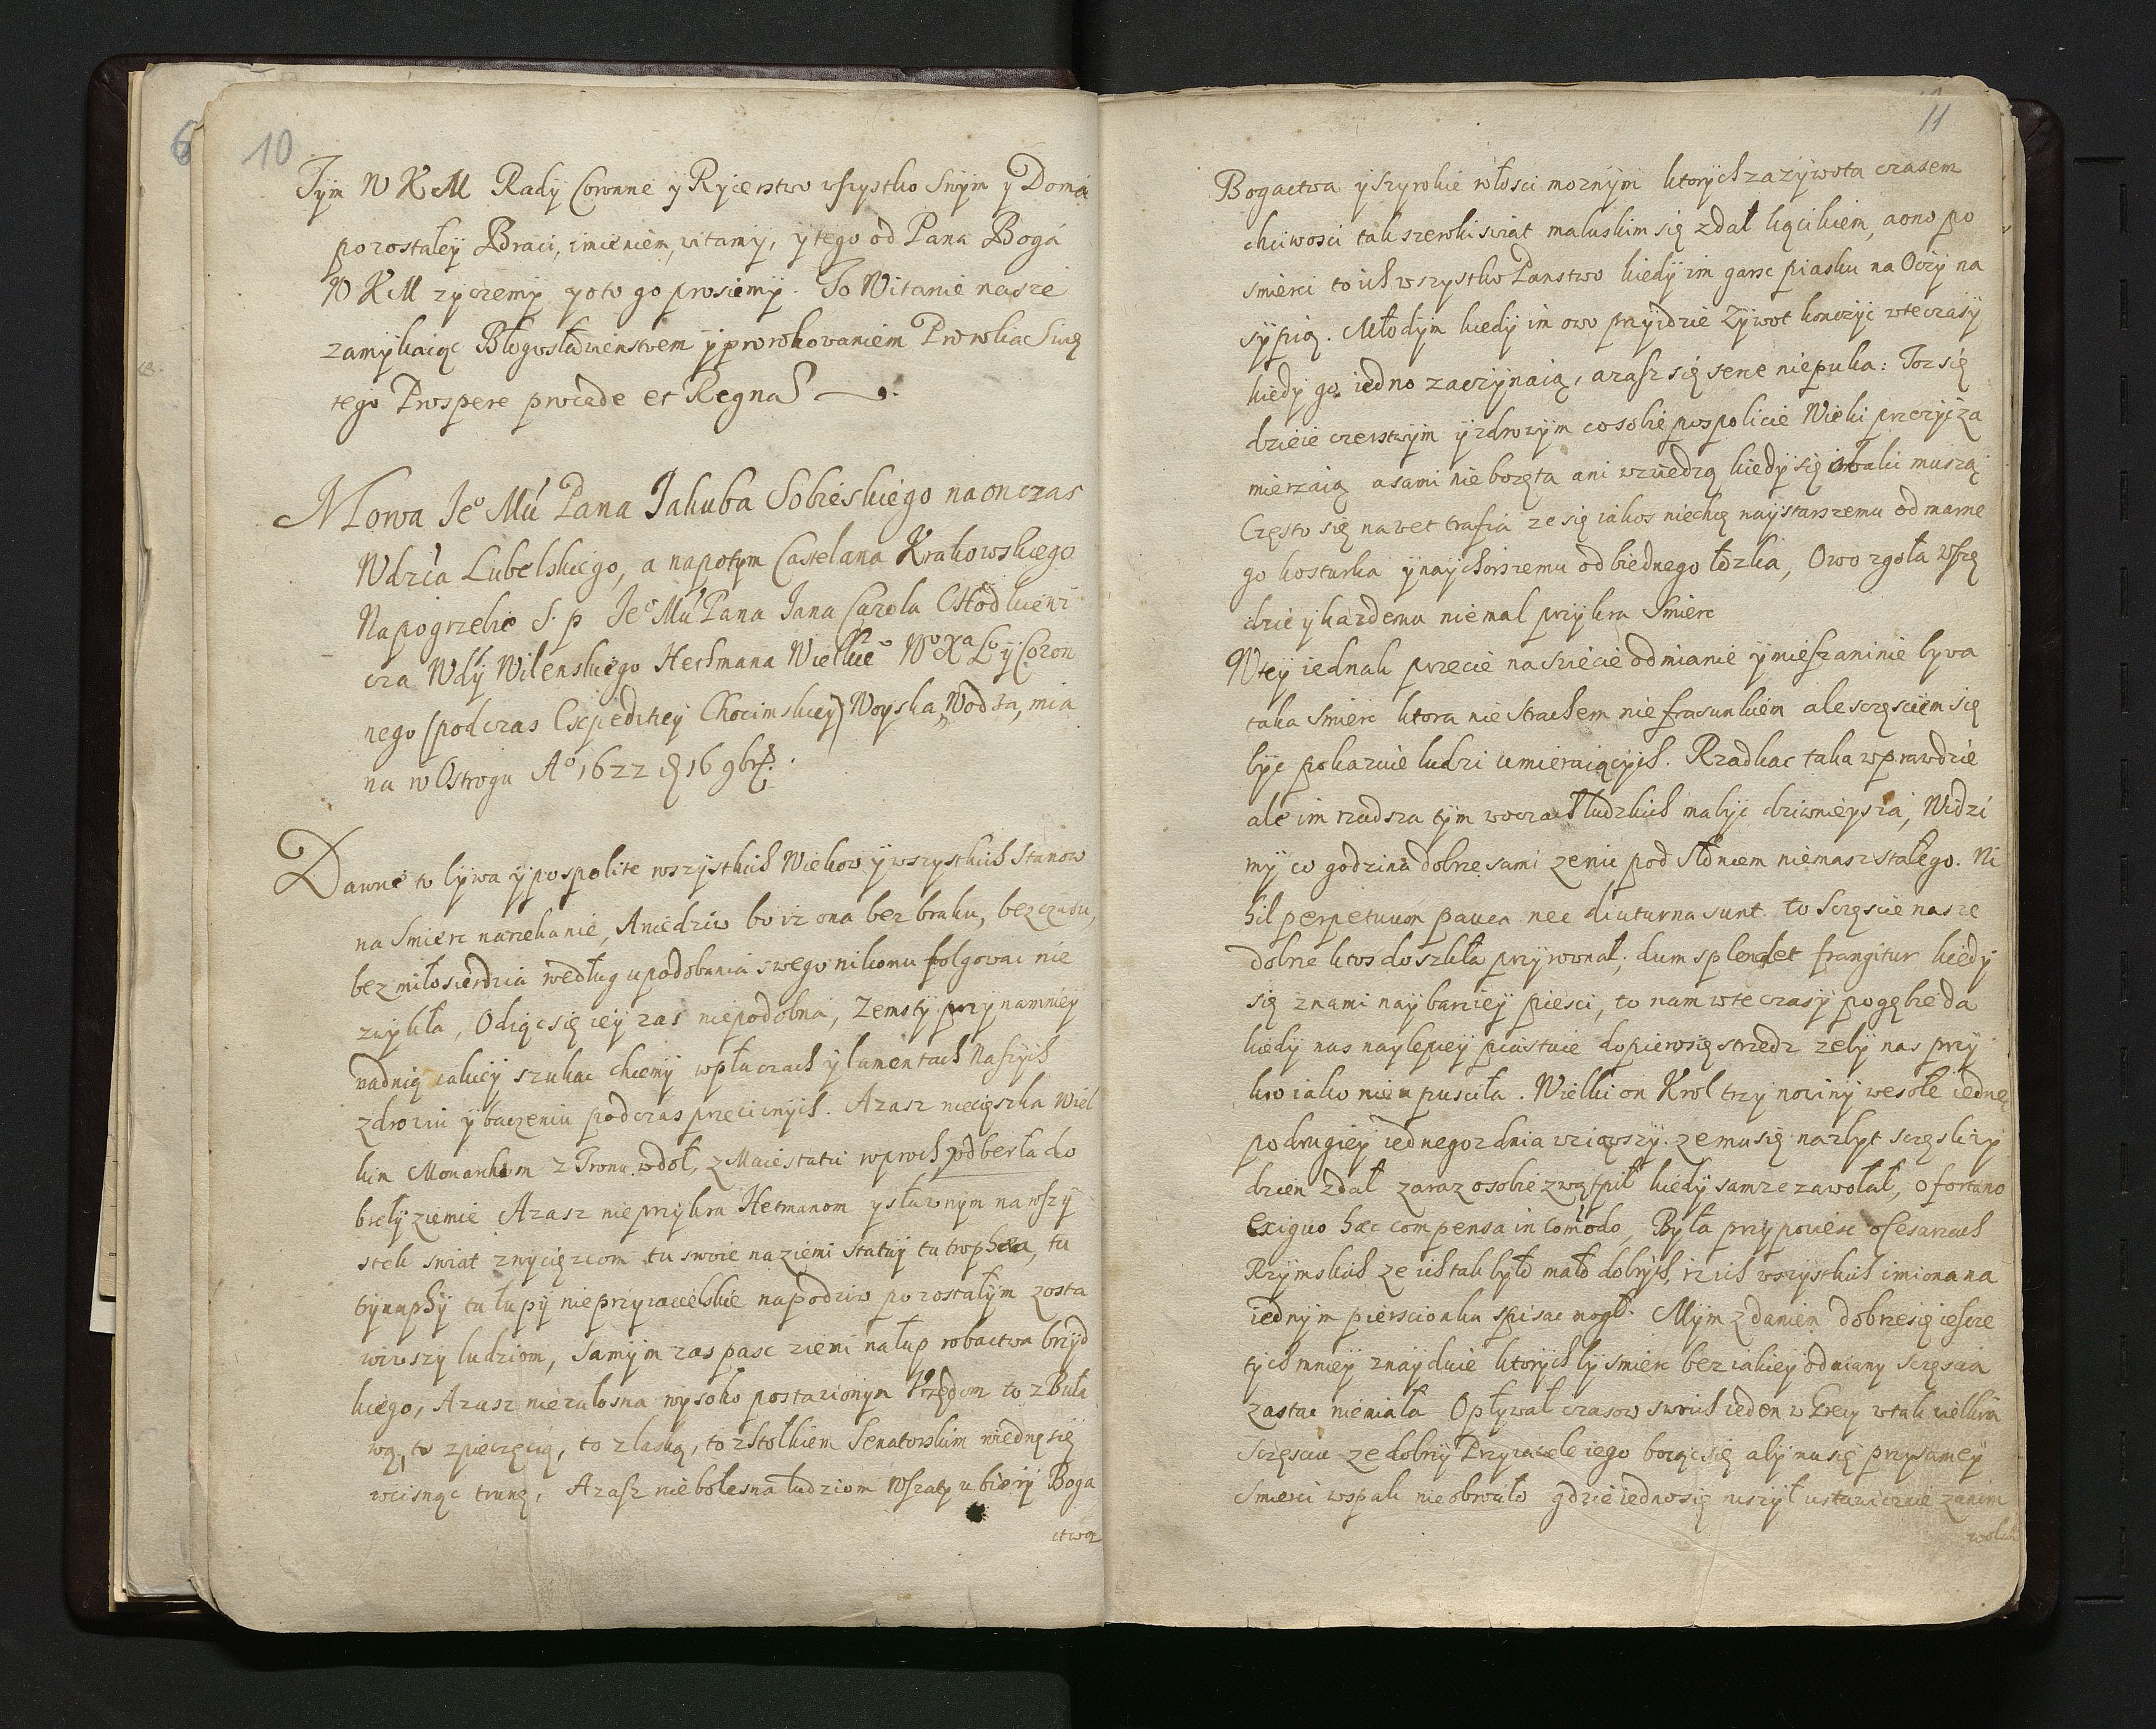 6
10
Tym W K M Rady Coronne y Rycerstwo wszystko Swym y Doma
pozostałey Braci, imieniem, witamy, y tego od Pana Boga
W K M zyczemy y oto go prosiemy. To Witanie nasze
zamykaiąc Błogosławienstwem y prorokowaniem Proroka Swię
tego Prospere procede et Regna
Mowa Jeº Mći Pana Jakuba Sobieskiego na on czas
Wdzica Lubelskiego, a napotym Castelana Krakowskiego
Na pogrzebie S. p Jeº Mći Pana Jana Carola Chodkiewi
cza Wdy Wilenskiego Hethmana Wielkieº Wº Xª Lº y Coron
nego (podczas Expeditiey Chocimskiey) Woyska, Wodza, mia
na w Ostrogu Aº 1622 d 16 9bris.
Dawne to bywa y pospolite wszystkich Wiekow y wszystkich stanow
na Smierc narzekanie, A nie dziw bo iz ona bez braku, bez czasu,
bez miłosierdzia według upodobania swego nikomu folgowac nie
zwykła, Odiąc się iey zas niepodobna, Zemsty przynamniey
nad nią iakiey szukac chcemy w płaczach y lamentach Naszych
zdrowiu y baczeniu podczas przeciwnych. Azasz niecięszka Wiel
kim Monarchom z Tronu w doł, z Maiestatu w proch, od berła do
bryły ziemie Azasz nie przykra Hetmanom y sławnym na wszy
stek swiat zwycięzcom tu swoie na ziemi statuy tu trophea, tu
tryumphy tu łupy nieprzyiacielskie na podziw pozostałym zosta
wiwszy ludziom, samym zas pasc ziemi na łup robactwa brzyd
kiego, Azasz nie załosna wysoko postawionym Vrzędom to z Buła
wą, to z pieczęcią, to z laską, to z Stołkiem Senatorskim w iednę się
wcisnąc trunę, Azasz nie bolesna ludziom W szaty ubiory Boga
ctwa
11
Bogactwa y szyrokie włosci moznym ktorych za zywota czasem
chciwosci tak szeroki swiat maluskim się zdał kącikiem, a ono po
smierci to ich wszystko Panstwo kiedy im garsc piasku na Oczy na
sypią. Młodym kiedy im owo przyidzie Zywot konczyc w te czasy
kiedy go iedno zaczynaią, azasz się serce nie puka: Toz się
dzieie czerstwym y zdrowym co sobie pospolicie Wieki przezyc za
mierzaią a sami nieboręta ani wzwiedzą kiedy się obalic muszą
Często się nawet trafia ze się iakos niechcę naystarszemu od marne
go kosturka y naychorszemu od biednego łozka, Owo zgoła Wszę
dzie y kazdemu niemal przykra Smierc
W tey iednak przecie na swiecie odmianie y mieszaninie bywa
taka Smierc ktora nie Strachem nie frasunkiem ale sczęsciem się
byc pokazuie ludzi umieraiących. Rzadkac taka wprawdzie
ale im rzadsza tym w oczach ludzkich ma byc dziwnieysza, Widzi
my co godzina dobrze sami ze nic pod Słoncem niemasz stałego. Ni
hil perpetuum pauca nec diuturna sunt. to Sczęscie nasze
dobrze ktos do szkła przyrownał; dum splendet frangitur kiedy
się z nami naybarziey piesci, to nam w te czasy po gębie da
kiedy nas naylepiey piastuie dopiero się strzedz zeby nas przy
kro iako nie upusciła. Wielki on Krol trzy nowiny wesołe iednę
po drugiey iednegoz dnia wziąwszy. ze mu się nazbyt sczęsliwy
dzien zdał zaraz o sobie zwątpił kiedy sam ze zawołał, o fortuno
exiguo hæc compensa incomodo, Była przypowiesc o Cesarzach
Rzymskich ze ich tak było mało dobrych, iz ich wszystkich imiona na
iednym pierscionku spisac mogł. Mym zdaniem dobrze się iescze
tych mniey znayduie ktorychby smierc bez iakiey odmiany Sczęscia
zastac niemiała Opływał czasow swoich ieden w Grecy w tak wielkim
Sczęsciu ze dobrzy Przyiaciele iego boiąc się aby mu się przy samey
Smierci wspak nie obrociło gdzie iedno się ruszył ustawicznie za nim
wołali